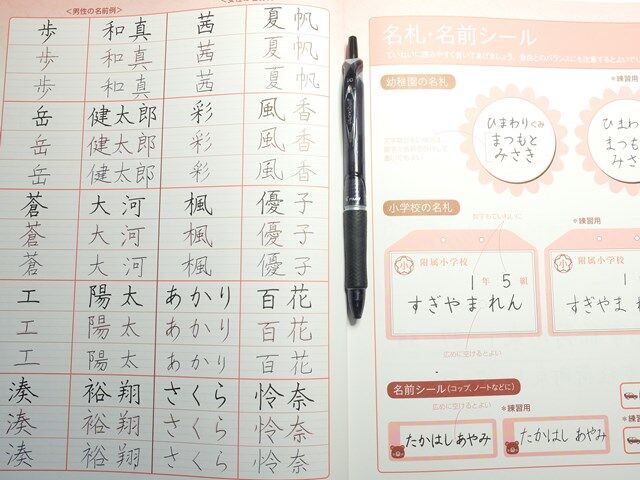 <男性の名前例>
歩 和真 茜 夏帆
歩 和真 茜 夏帆
歩 和真 茜 夏帆
岳 健太郎 彩 風香
岳 健太郎 彩 風香
岳 健太郎 彩 風香
蒼 大河 楓 優子
蒼 大河 楓 優子
蒼 大河 楓 優子
工 陽太 あかり 百花
工 陽太 あかり 百花
工 陽太 あかり 百花
湊 裕翔 さくら 怜奈
湊 裕翔 さくら 怜奈
湊 裕翔 さくら 怜奈
名札・名前シール
幼稚園の名札
*練習用
ひまわりくみ
まつもと
みさき
ひまわ
まつも
み
小学校の名札
数字もていねいに
*練習用
小 附属小学校
1年5組
すぎやま れん
小 附属小学校
1
すぎやま
広めに空けるとよい
名前シール(コップ、ノートなどに)
広めに空けるとよい
*練習用
*練習用
たかはし あやみ
たかはし あやみ